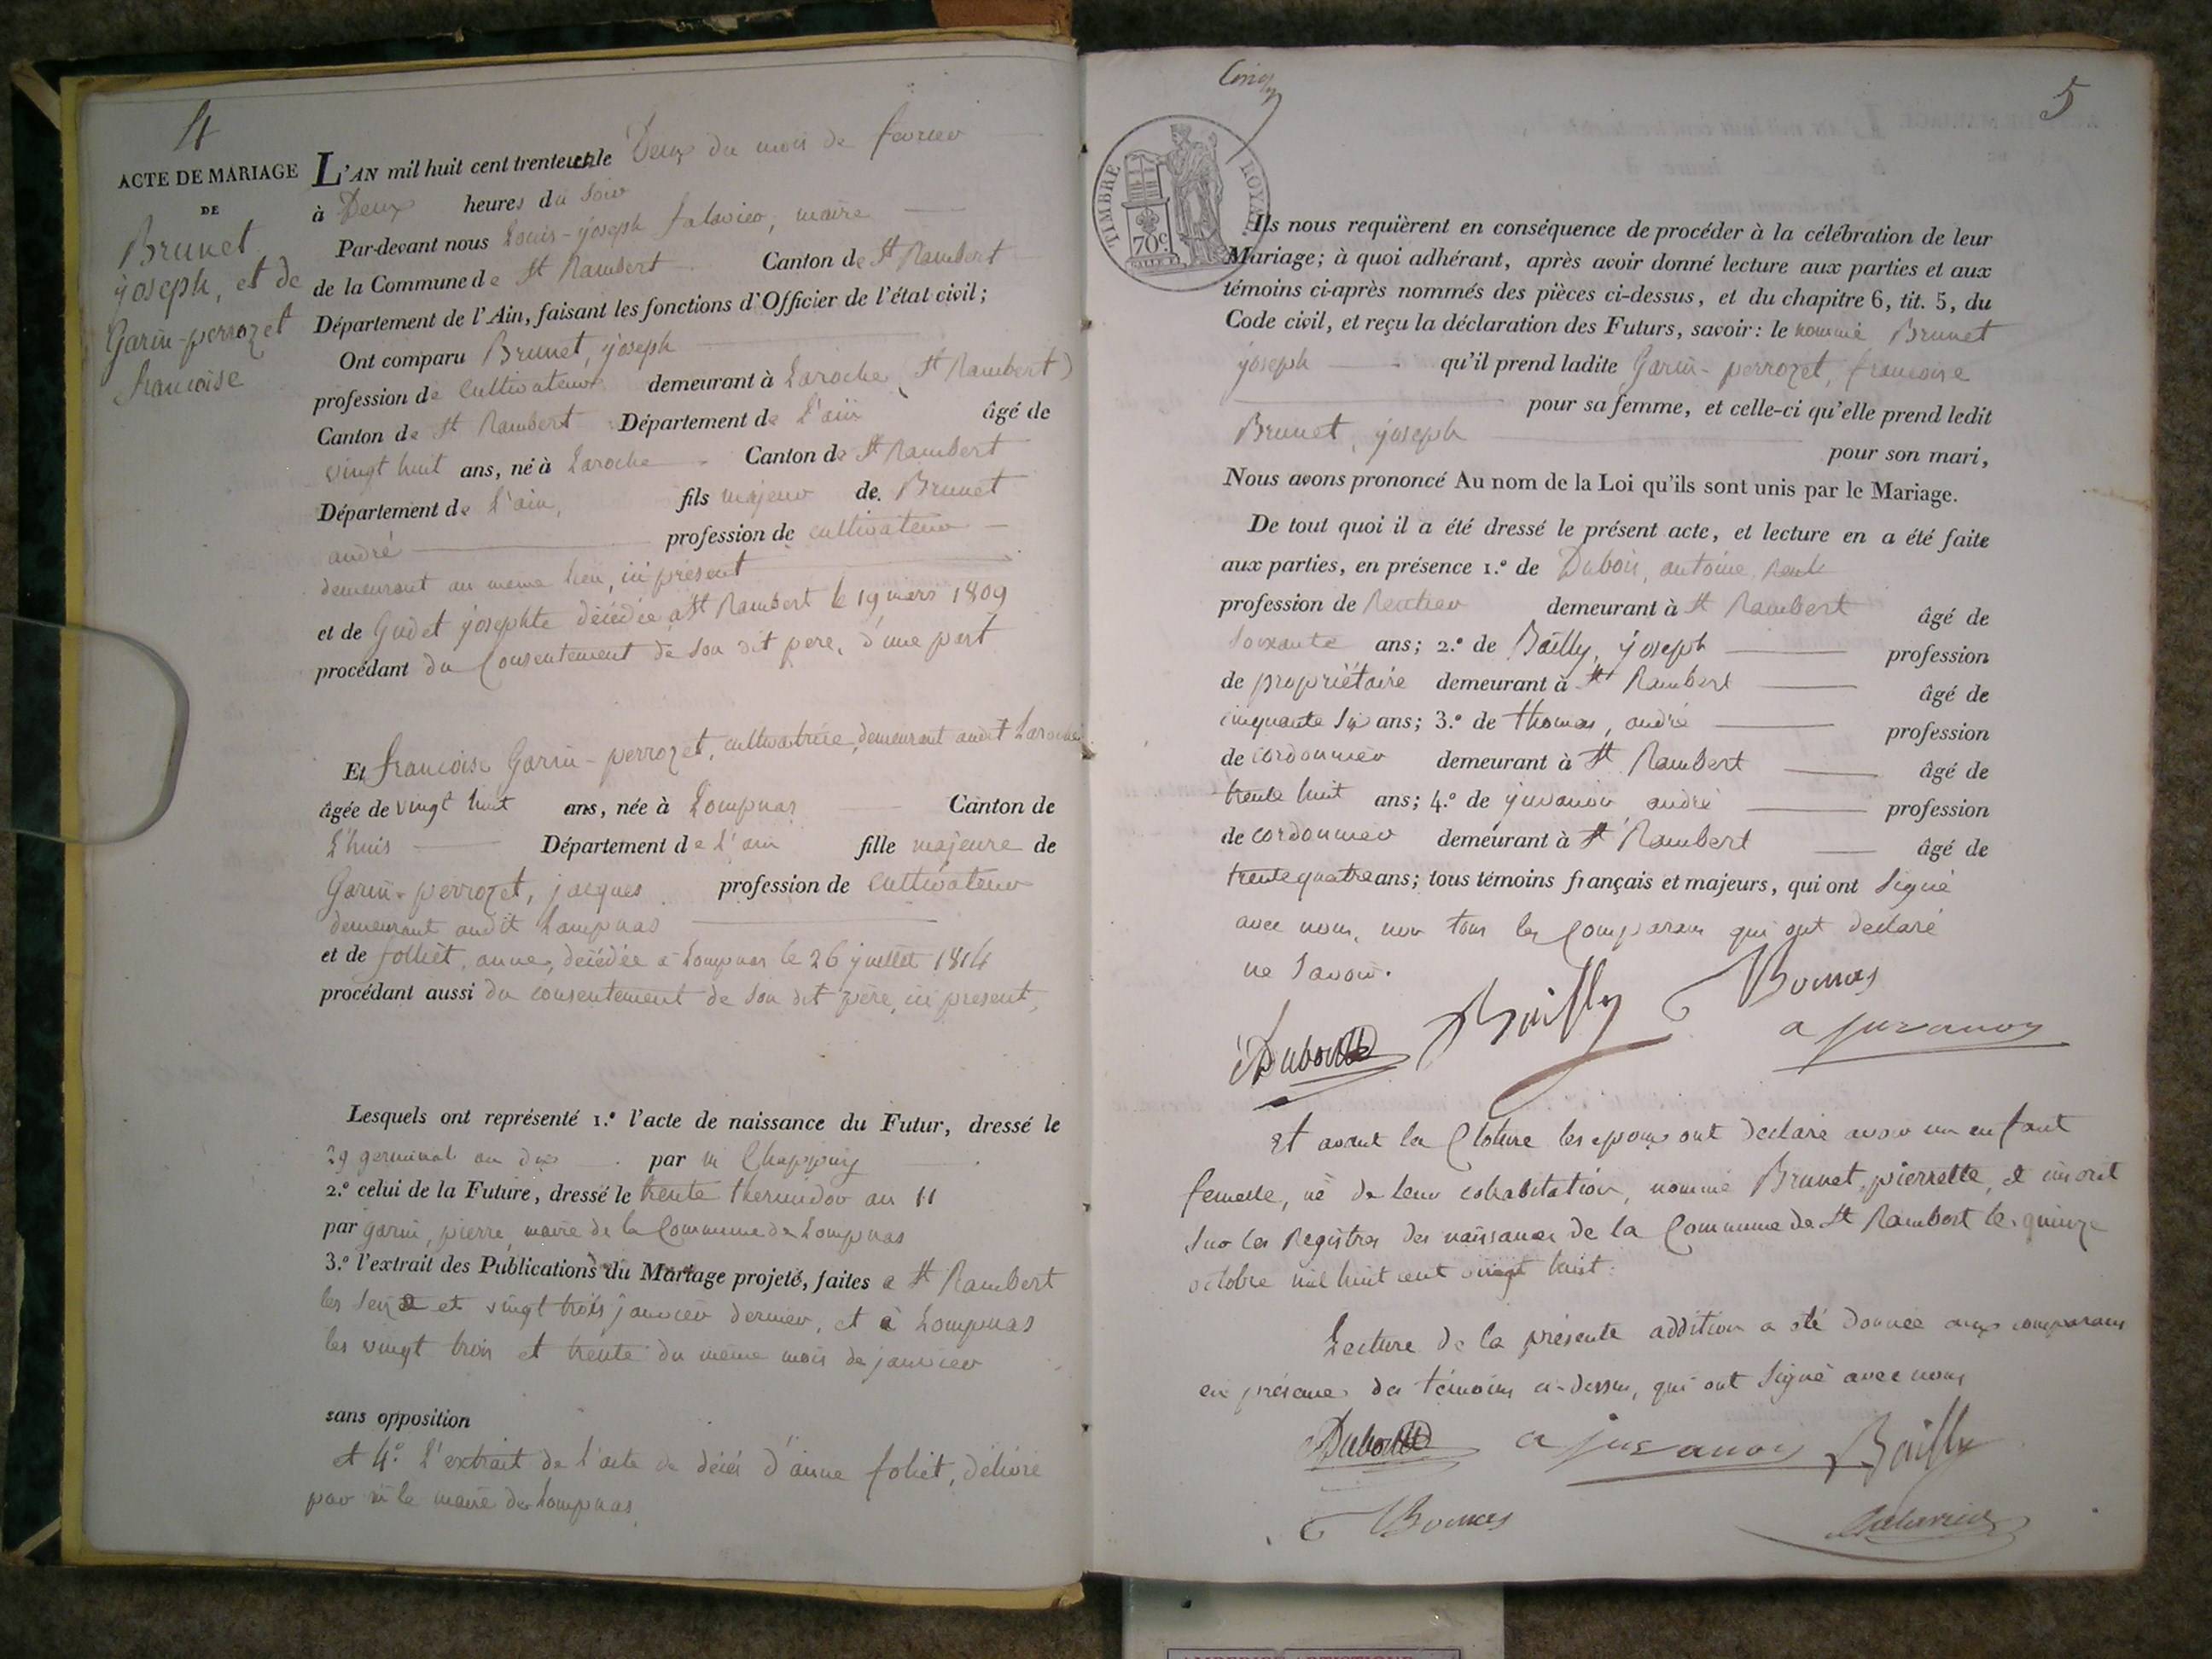 4
ACTE DE MARIAGE
DE
Brunet
joseph, et de
Garin-perrozet
francoise
L'AN mil huit cent trente le Deux du mois de fevrier
à Deux heures du soir
Par-devant nous Louis-joseph Salavier, maire
de la Commune de St Rambert Canton de St Rambert
Département de l'Ain, faisant les fonctions d'Officier de l'état civil;
Ont comparu Brunet, joseph
profession de Cultivateur demeurant à Laroche (St Rambert)
Canton de St Rambert Département de L'ain âgé de
vingt huit ans, né à Laroche Canton de St Rambert
Département de L'ain, fils majeur de Brunet
andré profession de cultivateur
demeurant au meme lieu, ici présent
et de Gudet josephte décédée a St Rambert le 19 mars 1809
procédant du Consentement de son dit pere, d'une part
Et francoise Garin-perrozet, cultivatrice, demeurant audit Laroche
âgée de vingt huit ans, née à Lompnas Canton de
L'huis Département de L'ain fille majeure de
Garin-perrozet, jacques profession de Cultivateur
demeurant audit Lompnas
et de folliet, anne, décédée à Lompnas le 26 juillet 1814
procédant aussi du consentement de son dit père, ici present,
Lesquels ont représenté 1.º l'acte de naissance du Futur, dressé le
29 germinal an dix par M Chappuy
2.º celui de la Future, dressé le trente thermidor an 11
par garin, pierre, maire de la Commune de Lompnas
3.º l'extrait des Publications du Mariage projeté, faites a St Rambert
les seize et vingt trois janvier dernier, et à Lompnas
les vingt trois et trente du même mois de janvier
sans opposition
et 4.º L'extrait de l'acte de décès d'anne foliet, délivré
par M le maire de Lompnas
Cinq
5
TIMBRE ROYAL
70c
Ils nous requièrent en conséquence de procéder à la célébration de leur
Mariage; à quoi adhérant, après avoir donné lecture aux parties et aux
témoins ci-après nommés des pièces ci-dessus, et du chapitre 6, tit. 5, du
Code civil, et reçu la déclaration des Futurs, savoir: le nommé Brunet
joseph qu'il prend ladite Garin-perrozet, francoise
pour sa femme, et celle-ci qu'elle prend ledit
Brunet, joseph pour son mari,
Nous avons prononcé Au nom de la Loi qu'ils sont unis par le Mariage.
De tout quoi il a été dressé le présent acte, et lecture en a été faite
aux parties, en présence 1.º de Dubois, antoine
profession de Rentier demeurant à St Rambert âgé de
soixante ans; 2.º de Bailly, joseph profession
de propriétaire demeurant à St Rambert âgé de
cinquante six ans; 3.º de thomas, andré profession
de cordonnier demeurant à St Rambert âgé de
trente huit ans; 4.º de juvanon, andré profession
de cordonnier demeurant à St Rambert âgé de
trente quatre ans; tous témoins français et majeurs, qui ont signé
avec nous, non tous les Comparans qui ont déclaré
ne savoir.
Bailly
Et avant la Cloture les epoux ont declaré avoir un enfant
femelle, né de leur cohabitation, nommé Brunet, pierrette, et inscrit
sur les Registres des naissances de la Commune de St Rambert le quinze
octobre mil huit cent vingt huit.
Lecture de la présente addition a été donnée aux comparans
en présence des témoins ci-dessus, qui ont signé avec nous
Bailly